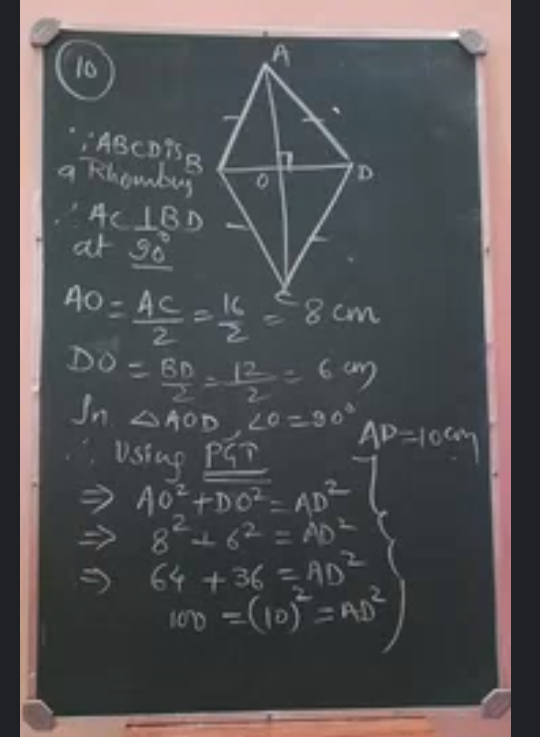 10
A
∵ ABCD is
a Rhombus
B
O
D
C
∴ AC ⊥ BD
at 90°
AO = AC/2 = 16/2 = 8 cm
DO = BD/2 = 12/2 = 6 cm
In △AOD, ∠O = 90°
∴ Using PGT
⇒ AO² + DO² = AD²
⇒ 8² + 6² = AD²
⇒ 64 + 36 = AD²
100 = (10)² = AD²
AD = 10 cm